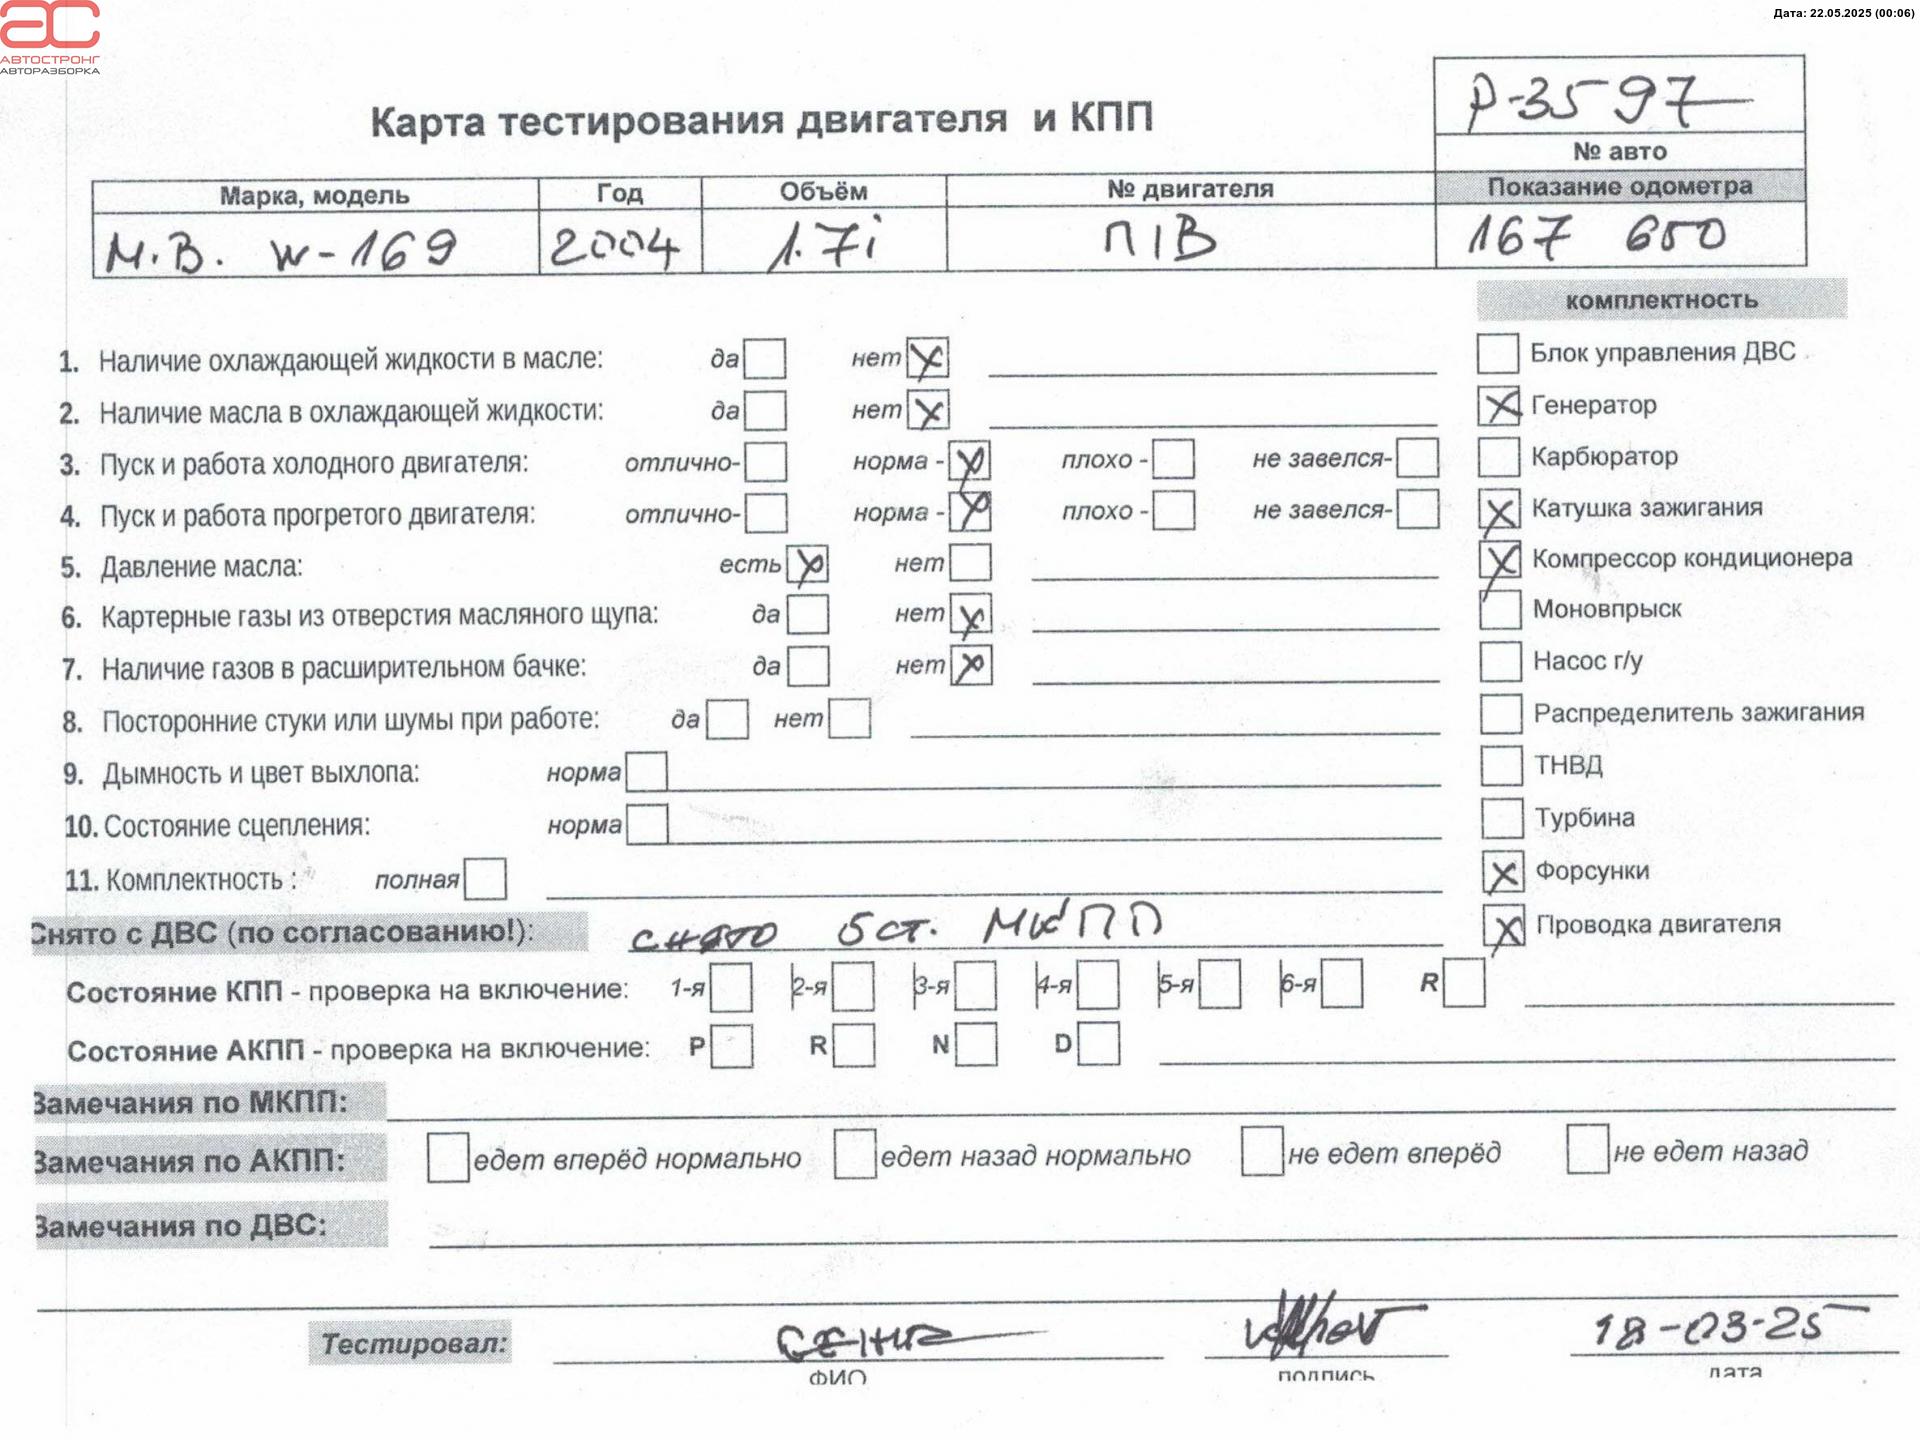 АВТОСТРОНГ
АВТОРАЗБОРКА
Дата: 22.05.2025 (00:06)
Карта тестирования двигателя и КПП
Р-3597
№ авто
Марка, модель Год Объём № двигателя Показание одометра
М.В. W-169 2004 1.7i П1В 167 650
комплектность
1. Наличие охлаждающей жидкости в масле: да нет
Блок управления ДВС
2. Наличие масла в охлаждающей жидкости: да нет
Генератор
3. Пуск и работа холодного двигателя: отлично- норма - плохо - не завелся-
Карбюратор
4. Пуск и работа прогретого двигателя: отлично- норма - плохо - не завелся-
Катушка зажигания
5. Давление масла: есть нет
Компрессор кондиционера
6. Картерные газы из отверстия масляного щупа: да нет
Моновпрыск
7. Наличие газов в расширительном бачке: да нет
Насос г/у
8. Посторонние стуки или шумы при работе: да нет
Распределитель зажигания
9. Дымность и цвет выхлопа: норма
ТНВД
10. Состояние сцепления: норма
Турбина
11. Комплектность : полная
Форсунки
Снято с ДВС (по согласованию!): снято 5ст. МКПП
Проводка двигателя
Состояние КПП - проверка на включение: 1-я 2-я 3-я 4-я 5-я 6-я R
Состояние АКПП - проверка на включение: P R N D
Замечания по МКПП:
Замечания по АКПП: едет вперёд нормально едет назад нормально не едет вперёд не едет назад
Замечания по ДВС:
Тестировал: 18-03-25
ФИО подпись дата